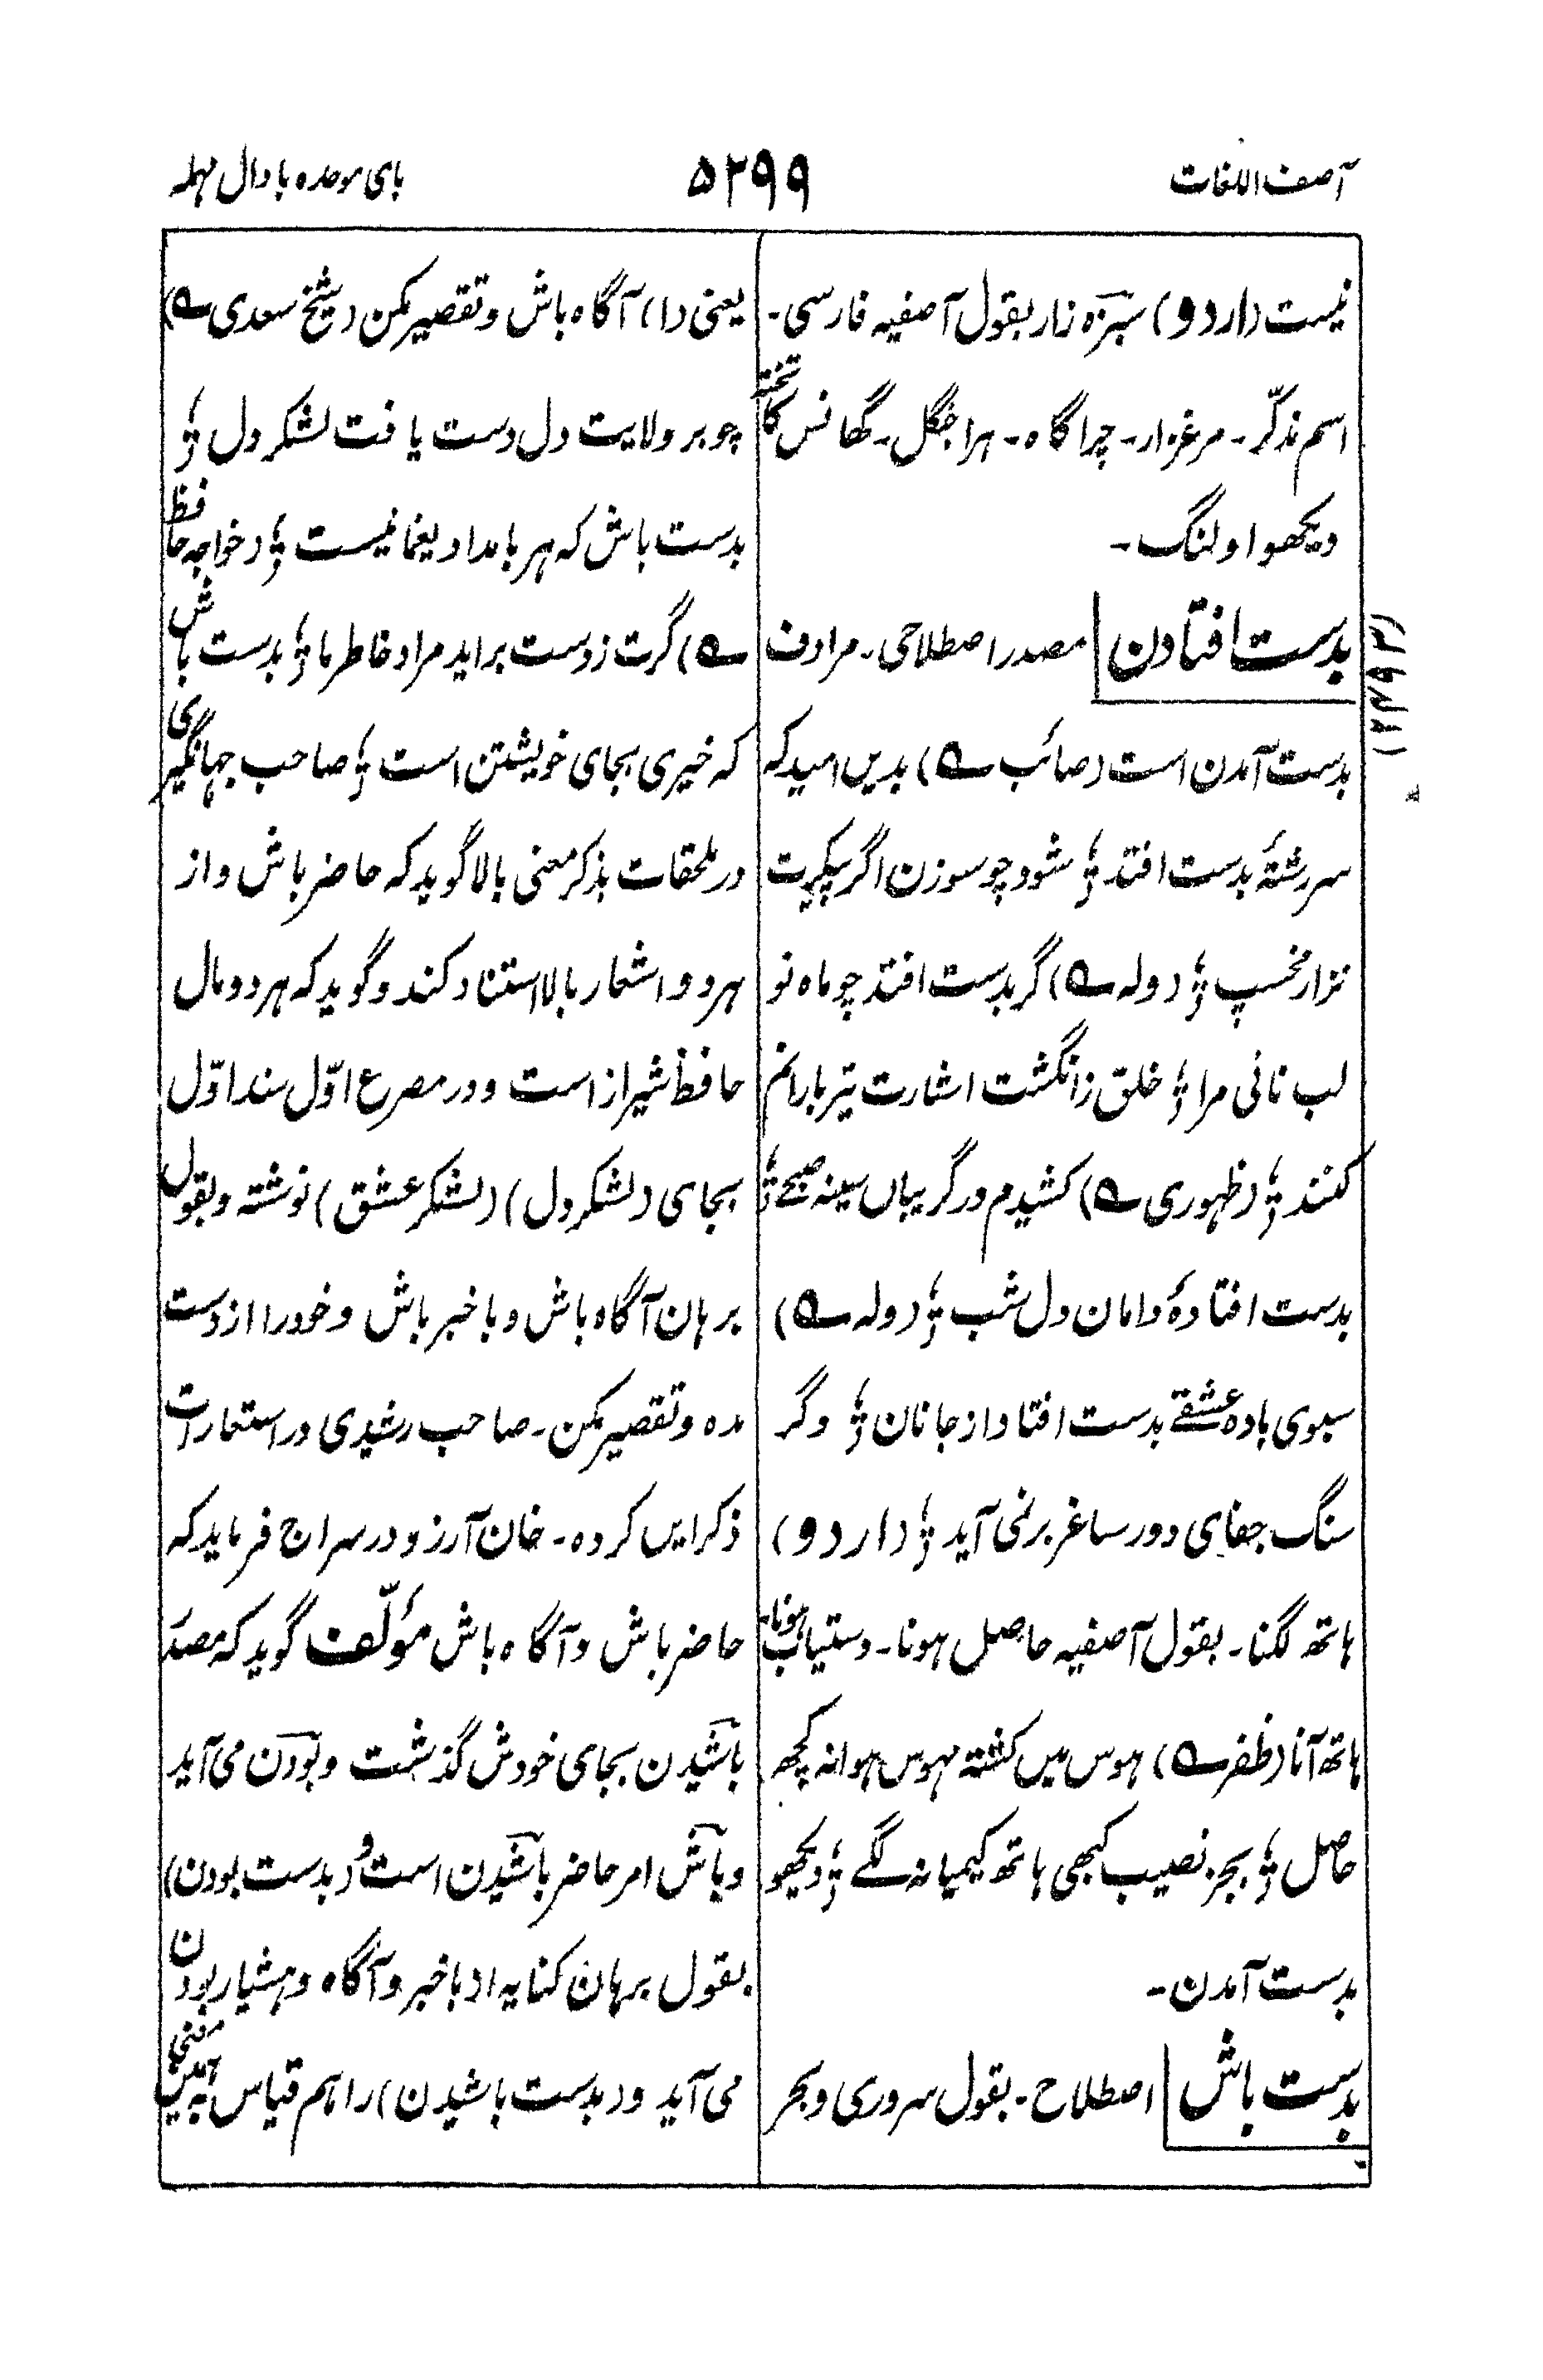 آصف اللغات
۵۲۹۹
بای موحده با دال مهمله
نیست (اردو) سبزه زار بقول آصفیه فارسی۔
اسم مذکّر۔ مرغزار۔ چراگاه۔ ہرا جنگل۔ گھانس کا تختہ
دیکھو اولنگ۔
بدست افتادن مصدر اصطلاحی۔ مرادف
بدست آمدن است (صائب ؎) بدیں امید که
سر رشتهٔ بدست افتد ؛ شود چو سوزن اگر پیکرت
نزار مخسپ ؛ (وله ؎) گر بدست افتد چو ماه نو
لب نانی مرا ؛ خلق ز انگشت اشارت تیر بارانم
کنند ؛ (ظهوری ؎) کشیدم در گریباں سینه صبحے ؛
بدست افتادهٔ دامان دل شب ؛ (وله ؎)
سبوی باده عشقے بدست افتاد از جانان ؛ وگر
سنگ جفای دور ساغر بر نمی آید ؛ (اردو)
ہاتھ لگنا۔ بقول آصفیه حاصل ہونا۔ دستیاب ہونا۔
ہاتھ آنا (ظفر ؎) ہوس میں کشته مہوس ہوا نہ کچھ
حاصل ؛ بجز نصیب کبھی ہاتھ کیمیا نہ لگے ؛ دیکھو
بدست آمدن۔
بدست باش اصطلاح۔ بقول سروری و بحر
یعنی (۱) آگاه باش و تقصیر مکن (شیخ سعدی ؎)
چو بر ولایت دل دست یافت لشکر دل ؛
بدست باش که هر بامداد یغما نیست ؛ (خواجه حافظ
؎) گرت ز دست براید مراد خاطر ما ؛ بدست باش
که خیری بجای خویشتن است ؛ صاحب جهانگیری
در ملحقات بذکر معنی بالا گوید که حاضر باش و از
هر دو اشعار بالا استناد کند و گوید که هر دو مال
حافظ شیراز است و در مصرع اوّل سند اوّل
بجای (لشکر دل) (لشکر عشق) نوشته و بقول
برهان آگاه باش و با خبر باش و خود را از دست
مده و تقصیر مکن۔ صاحب رشیدی در استعارات
ذکر ایں کرده۔ خان آرزو در سراج فرماید که
حاضر باش و آگاه باش مؤلّف گوید که مصدر
باشیدن بجای خودش گذشت و بودن می آید
و باش امر حاضر باشیدن است و (بدست بودن)
بقول برهان کنایه از با خبر و آگاه و هشیار بودن
می آید و (بدست باشیدن) را هم قیاس بهمین معنی